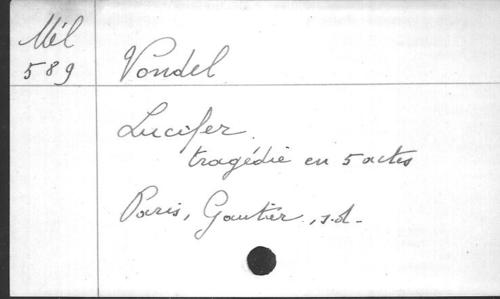 Mél
589
Vondel
Lucifer.
tragédie en 5 actes
Paris, Gautier, s.d.